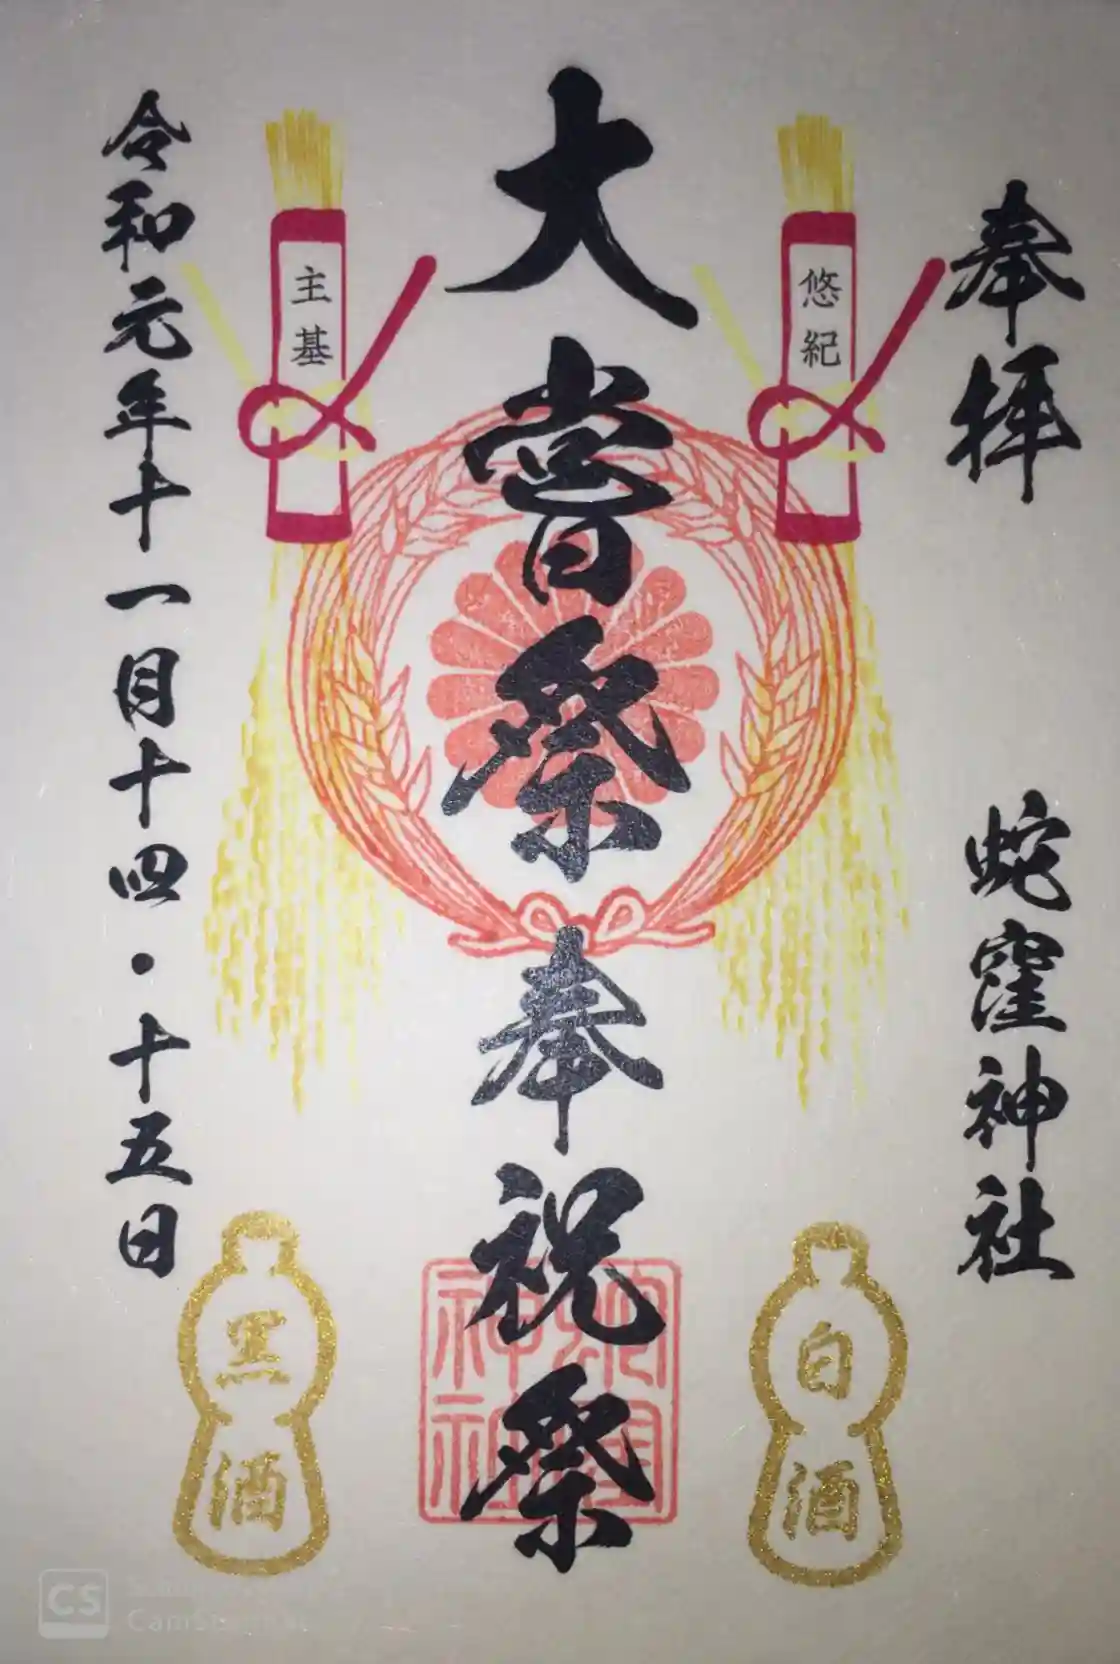 奉拝
蛇窪神社
悠紀
大嘗祭奉祝祭
主基
令和元年十一月十四・十五日
白酒
黒酒
蛇窪
神社
CS